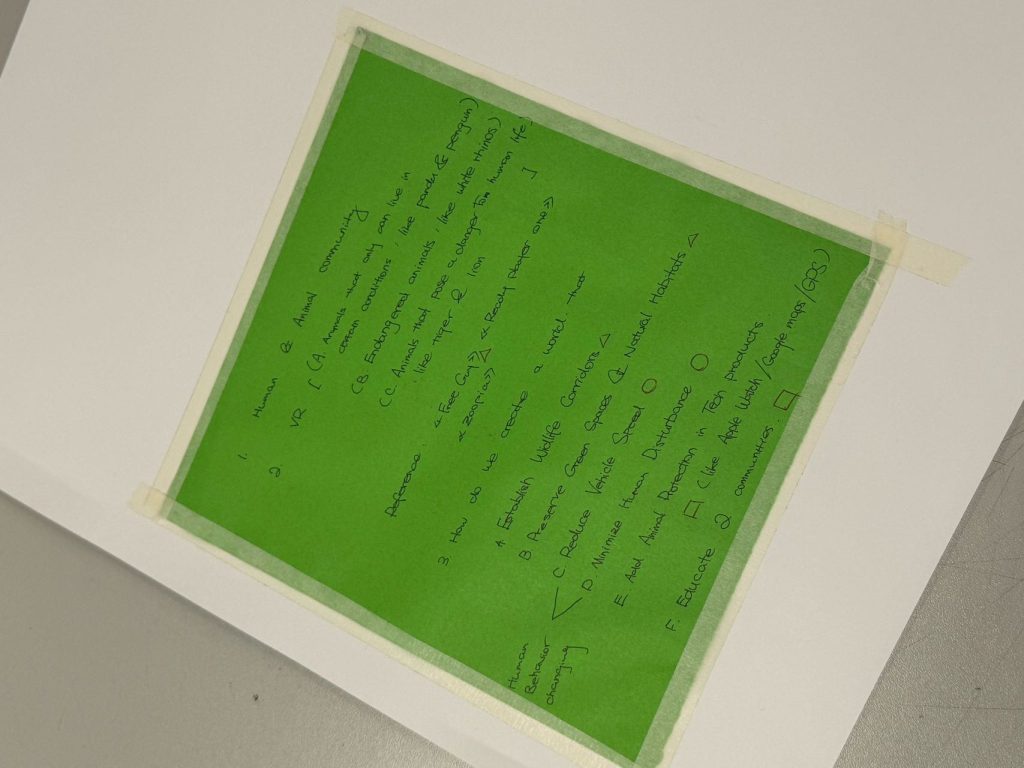 1. Human & Animal community
2 VR [ (A. Animals that only can live in
certain conditions, like panda & penguin)
(B Endangered animals, like white rhinos)
(C. Animals that pose a danger to human life,
like tiger & lion ]
Reference: <Free Guy> △ <Ready player one>
<Zoopia>
3 How do we create a world that
A Establish Wildlife Corridors △
B Preserve Green Spaces & Natural Habitats △
C Reduce Vehicle Speed ○
D. Minimize Human Disturbance ○
Human
Behavior
changing
E. Add Animal Protection in Tech products
□ (like Apple Watch / Google maps / GPS)
F. Educate 2 communities. □